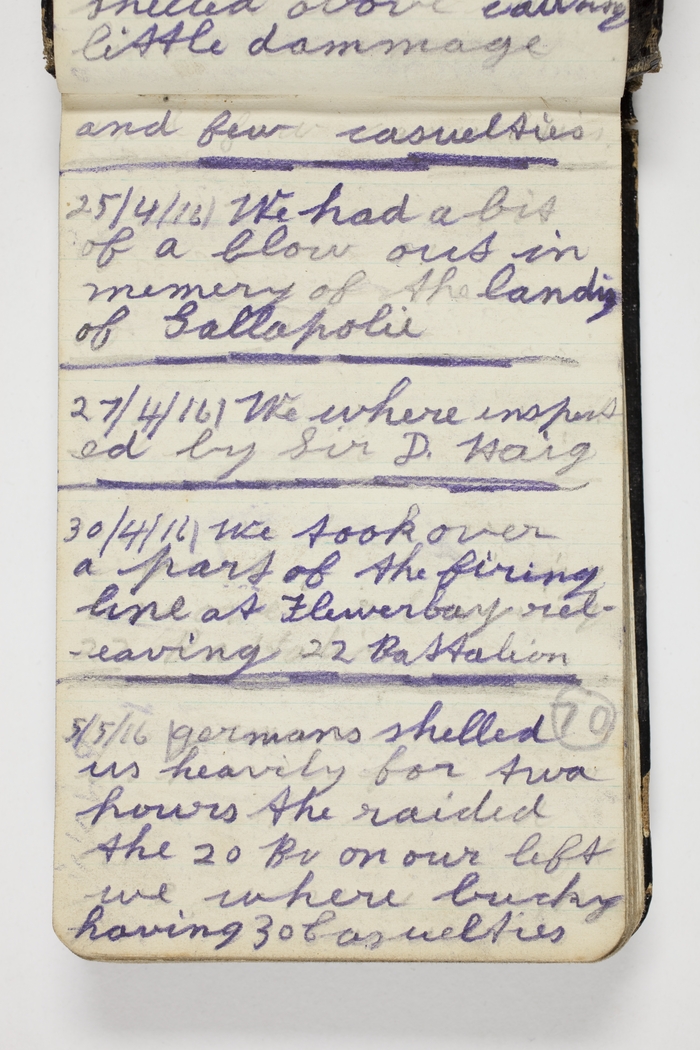 shelled above causing
little dammage
and few casuelties
25/4/16) We had a bit
of a blow out in
memery of the landig
of Gallapolie
27/4/16) We where inspect
ed by Sir D. Haig
30/4/16) We took over
a part of the firing
line at Flewerbay rel-
-eaving 22 Battalion
5/5/16 germans shelled
70
us heavily for two
hours the raided
the 20 Bn on our left
we where lucky
having 30 Casuelties